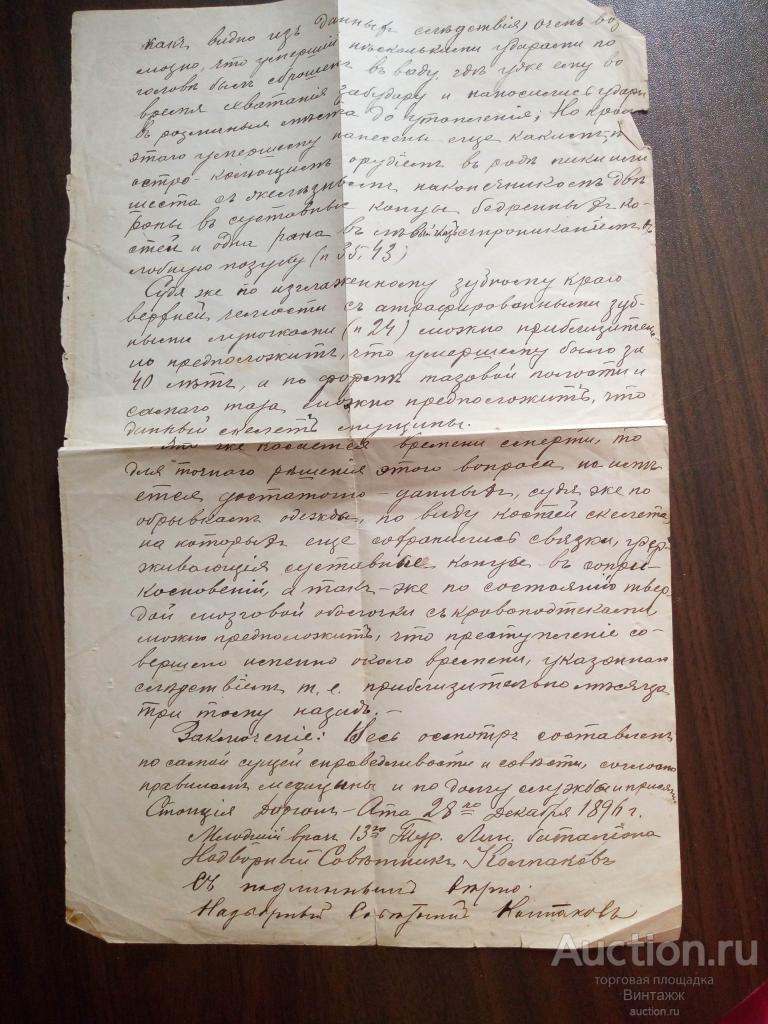 какъ видно изъ данныхъ слѣдствія, очень воз
можно, что умершій нѣсколькими ударами по
головѣ былъ сброшенъ въ воду, гдѣ уже ему во
время схватанія за будару и наносились удары
въ розныя мѣста до утопленія; Но кромѣ
этого умершему нанесены еще какимъ-то
остро-колющимъ орудіемъ въ родѣ пики или
шеста съ желѣзнымъ наконечникомъ двѣ
раны въ суставные концы бедренныхъ ко-
стей и одна рана въ лѣвый високъ прониканіемъ въ
лобную пазуху (п 35, 43)
Судя же по изглаженному зубному краю
верхней челюсти съ атрафированными зуб-
ными луночками (п 24) можно приблизитель-
но предположить, что умершему было за
40 лѣтъ, а по формѣ тазовой полости и
самаго таза можно предположить, что
данный скелетъ мущины.
Что же касается времени смерти, то
для точнаго рѣшенія этого вопроса не имѣ
ется достаточно данныхъ, судя же по
обрывкамъ одежды, по виду костей скелета
на которыхъ еще сохранились связки, удер-
живающія суставные концы въ сопри-
косновеній, а такъ-же по состоянію твер
дой мозговой оболочки съ кровоподтеками
можно предположить, что преступленіе со-
вершено именно около времени, указаннаго
слѣдствіемъ т. е. приблизительно мѣсяца
три тому назадъ. —
Заключеніе: Весь осмотръ составленъ
по самой сущей справедливости и совѣсти, согласно
правиламъ медицины и по долгу службы и присяги
Станція Даганъ-Ата 28го Декабря 1896 г.
Младшій врачъ 13го Тур. Лин. баталіона
Надворный Совѣтникъ Колпаковъ
Съ подлиннымъ вѣрно:
Надворный Совѣтникъ Колпаковъ
Auction.ru
торговая площадка
Винтажъ
auction.ru